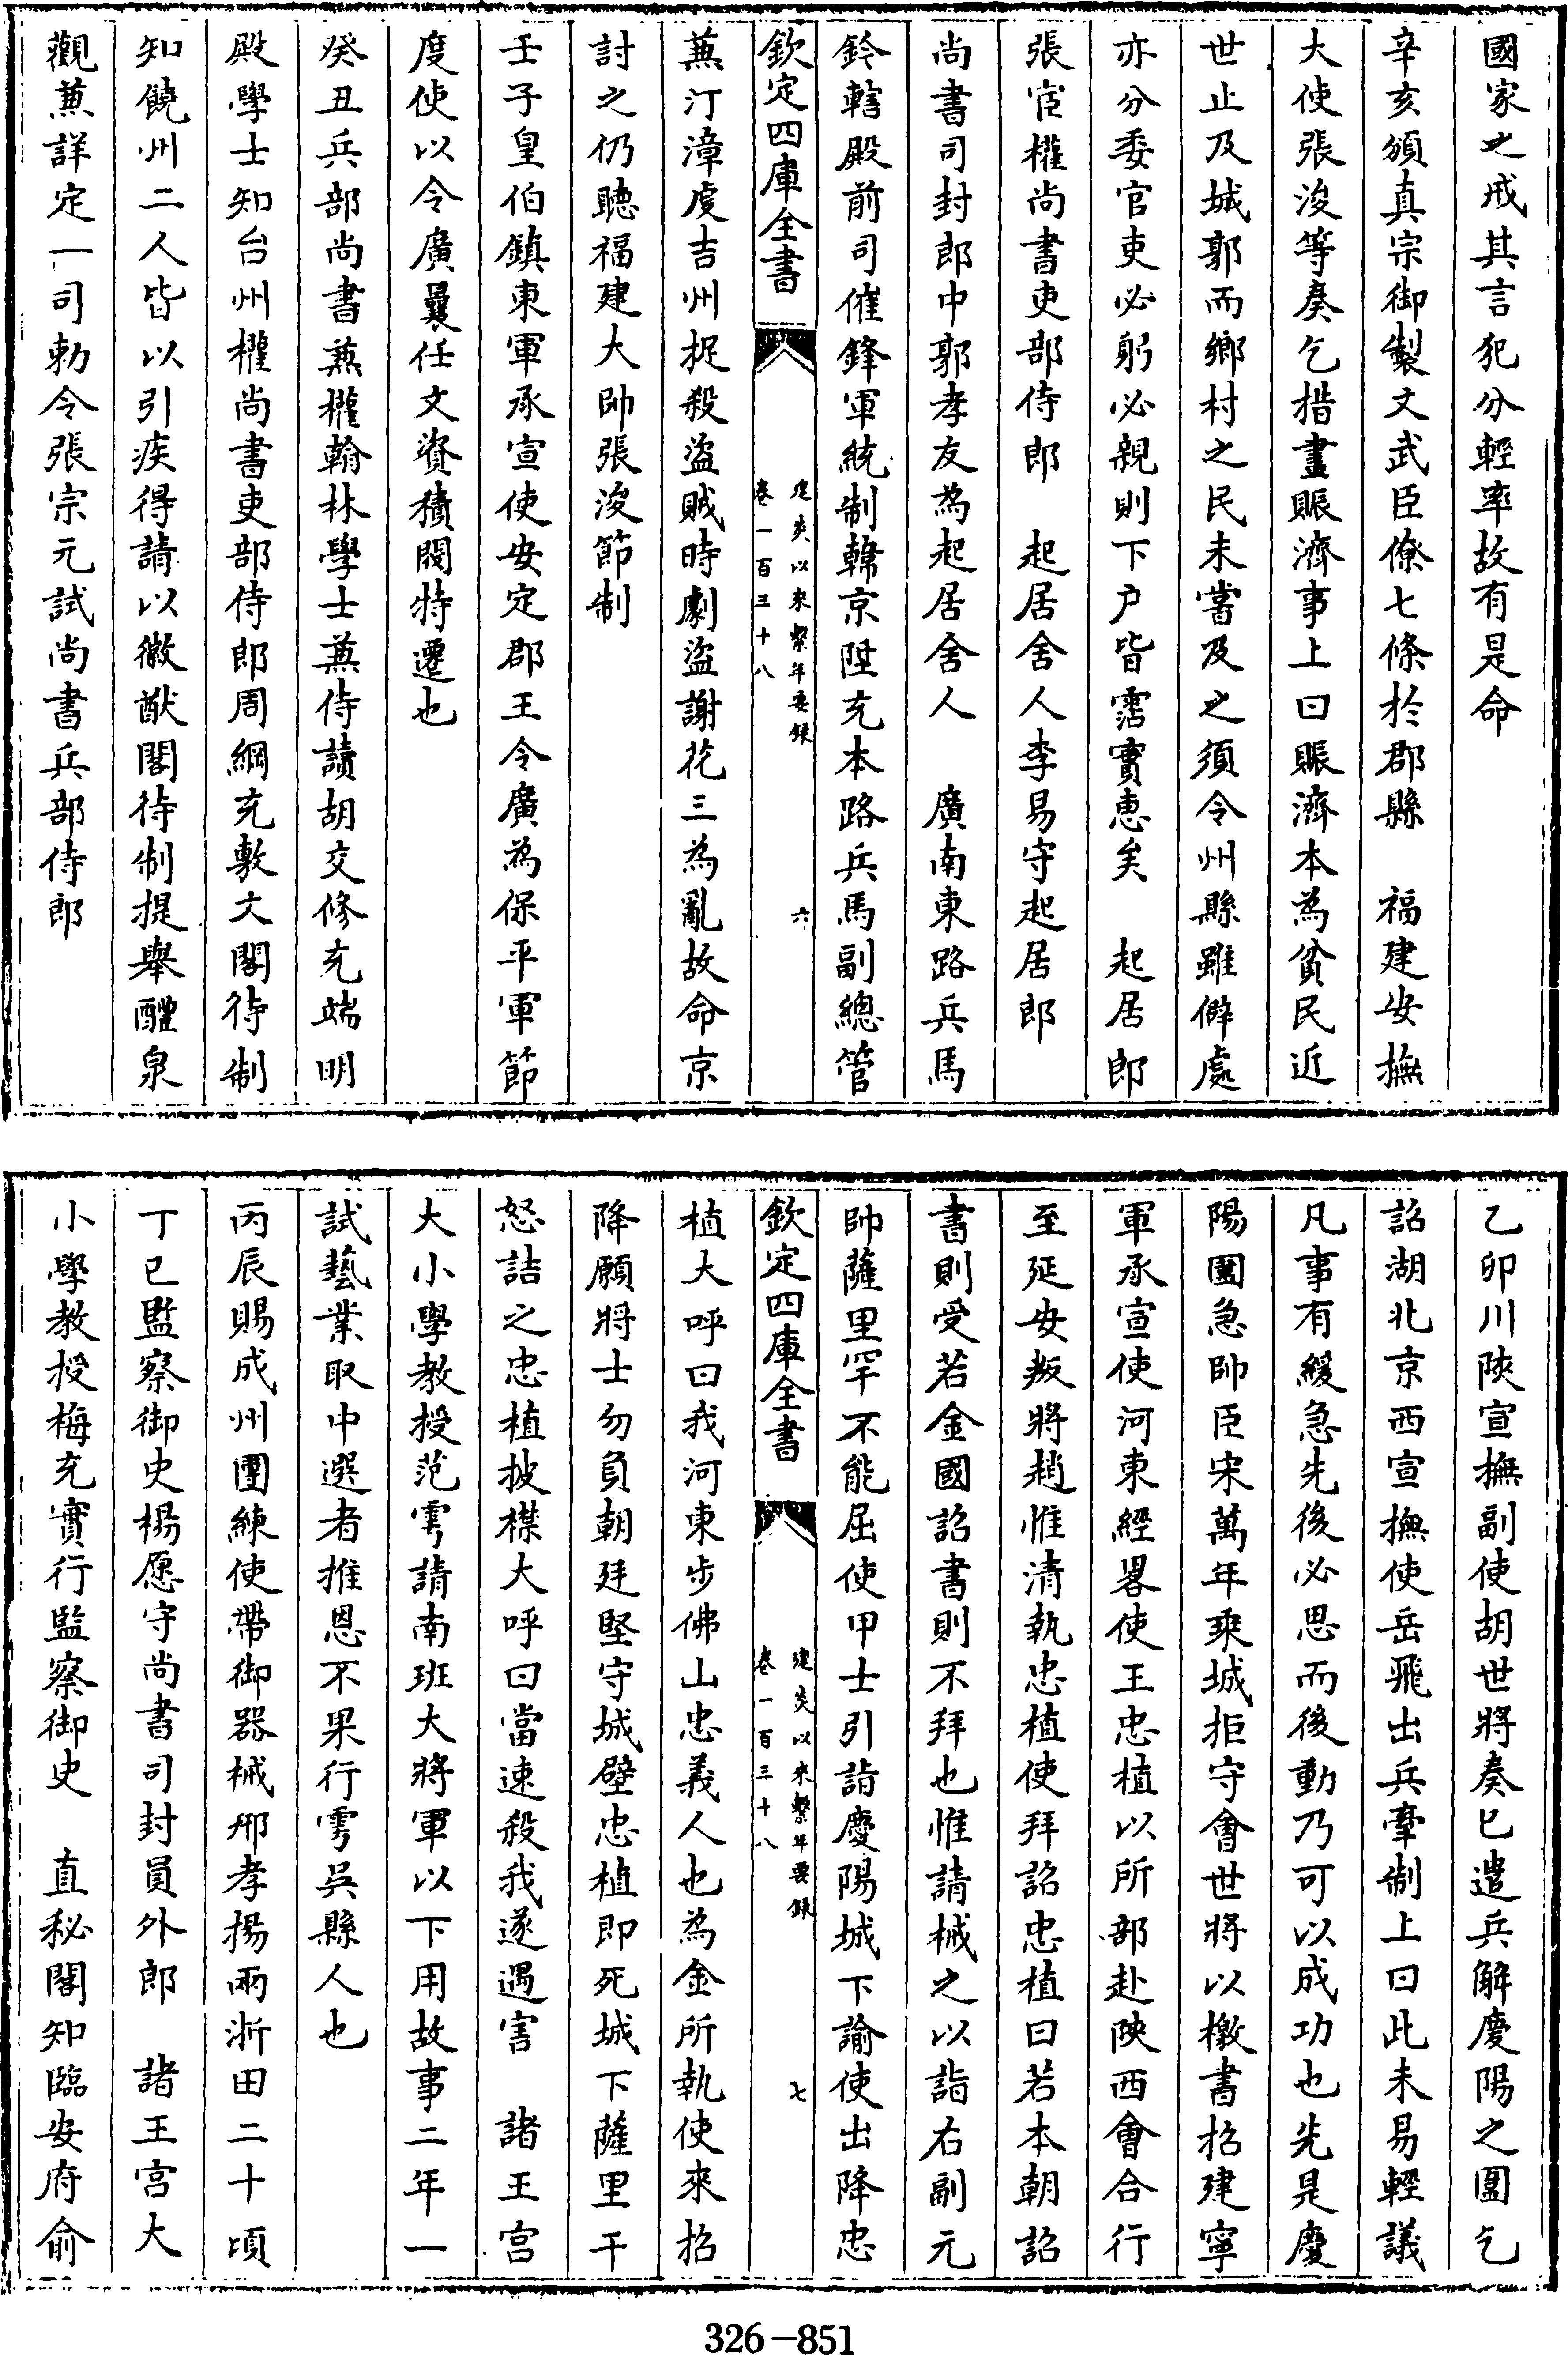 國家之戒其言犯分輕率故有是命
辛亥頒真宗御製文武臣僚七條於郡縣　福建安撫
大使張浚等奏乞措畫賑濟事上曰賑濟本為貧民近
世止及城郭而鄉村之民未嘗及之須令州縣雖僻處
亦分委官吏必躬必親則下户皆霑實惠矣　起居郎
張宦權尚書吏部侍郎　起居舍人李易守起居郎
尚書司封郎中郭孝友為起居舍人　廣南東路兵馬
鈐轄殿前司催鋒軍統制韓京陞充本路兵馬副總管
欽定四庫全書
建炎以來繫年要錄
卷一百三十八
六
蕪汀漳虔吉州捉殺盜賊時劇盜謝花三為亂故命京
討之仍聽福建大帥張浚節制
壬子皇伯鎮東軍承宣使安定郡王令廣為保平軍節
度使以令廣曩任文資積閥特遷也
癸丑兵部尚書兼權翰林學士兼侍讀胡交修充端明
殿學士知台州權尚書吏部侍郎周綱充敷文閣待制
知饒州二人皆以引疾得請以徽猷閣待制提舉醴泉
觀兼詳定一司勅令張宗元試尚書兵部侍郎
乙卯川陝宣撫副使胡世將奏已遣兵解慶陽之圍乞
詔湖北京西宣撫使岳飛出兵牽制上曰此未易輕議
凡事有緩急先後必思而後動乃可以成功也先是慶
陽圍急帥臣宋萬年乘城拒守會世將以檄書招建寧
軍承宣使河東經畧使王忠植以所部赴陝西會合行
至延安叛將趙惟清執忠植使拜詔忠植曰若本朝詔
書則受若金國詔書則不拜也惟請械之以詣右副元
帥薩里罕不能屈使甲士引詣慶陽城下諭使出降忠
欽定四庫全書
建炎以來繫年要錄
卷一百三十八
七
植大呼曰我河東步佛山忠義人也為金所執使來招
降願將士勿負朝廷堅守城壁忠植即死城下薩里干
怒詰之忠植披襟大呼曰當速殺我遂遇害　諸王宮
大小學教授范雩請南班大將軍以下用故事二年一
試藝業取中選者推恩不果行雩吳縣人也
丙辰賜成州團練使帶御器械邢孝揚兩浙田二十頃
丁巳監察御史楊愿守尚書司封員外郎　諸王宮大
小學教授梅充實行監察御史　直秘閣知臨安府俞
326-851